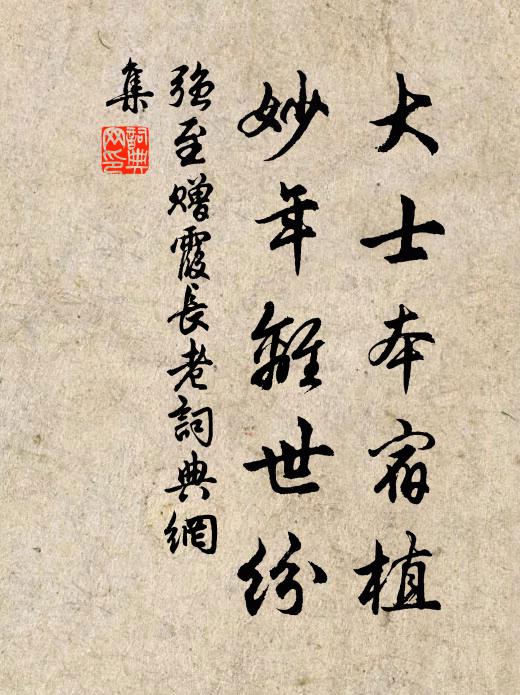 大士本宿植
妙年離世紛
強至贈霞長老詞典網
集
詞典网印